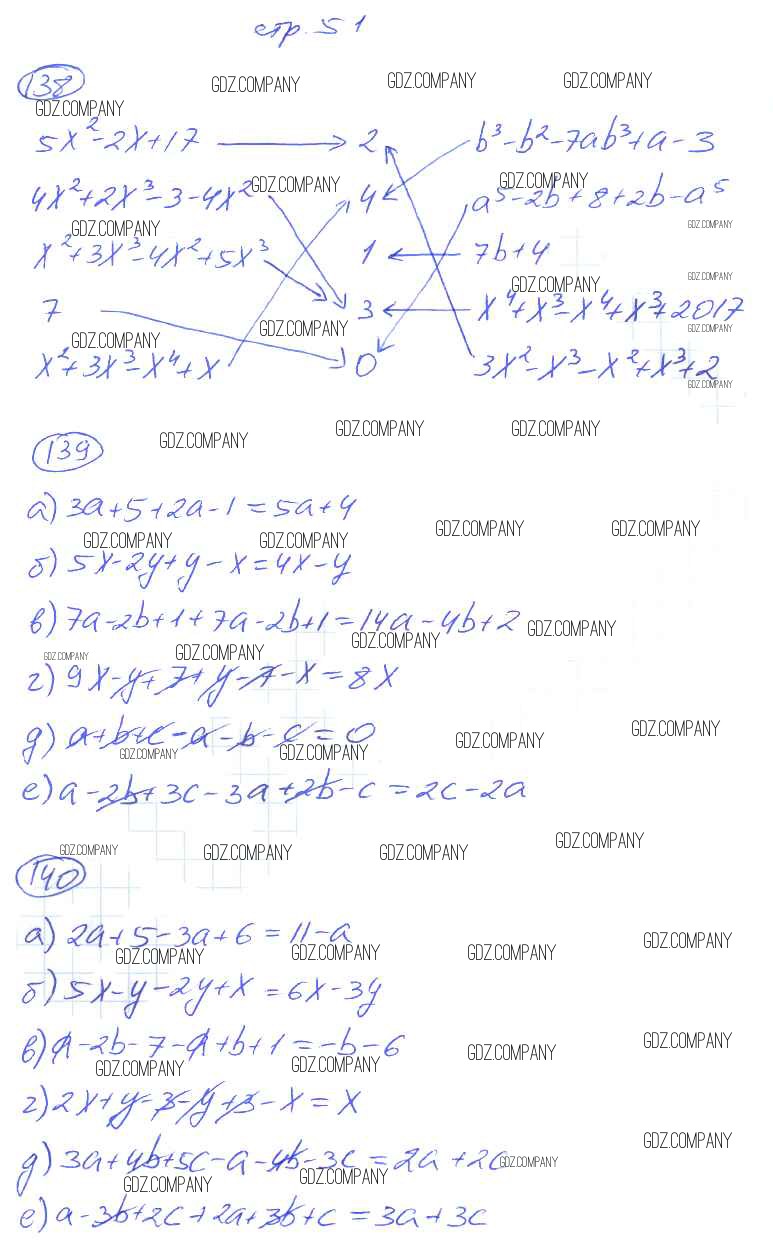 стр. 51
138
GDZ.COMPANY GDZ.COMPANY GDZ.COMPANY
GDZ.COMPANY
5x²-2x+17 → 2 b³-b²-7ab³+a-3
4x²+2x³-3-4x² GDZ.COMPANY 4 GDZ.COMPANY a⁵-2b+8+2b-a⁵
GDZ.COMPANY GDZ.COMPANY
x²+3x³-4x²+5x³ 1 ← 7b+4
GDZ.COMPANY GDZ.COMPANY
7 GDZ.COMPANY 3 ← x⁴+x³-x⁴+x³+2017
GDZ.COMPANY GDZ.COMPANY
x²+3x³-x⁴+x 0 3x²-x³-x²+x³+2
GDZ.COMPANY
139 GDZ.COMPANY GDZ.COMPANY GDZ.COMPANY
а) 3a+5+2a-1=5a+4
GDZ.COMPANY GDZ.COMPANY GDZ.COMPANY GDZ.COMPANY
б) 5x-2y+y-x=4x-y
в) 7a-2b+1+7a-2b+1=14a-4b+2 GDZ.COMPANY
GDZ.COMPANY GDZ.COMPANY GDZ.COMPANY
г) 9x-y+7+y-7-x=8x
д) a+b+c-a-b-c=0 GDZ.COMPANY GDZ.COMPANY
GDZ.COMPANY GDZ.COMPANY
е) a-2b+3c-3a+2b-c=2c-2a
GDZ.COMPANY GDZ.COMPANY GDZ.COMPANY GDZ.COMPANY
140
а) 2a+5-3a+6=11-a GDZ.COMPANY
GDZ.COMPANY GDZ.COMPANY GDZ.COMPANY
б) 5x-y-2y+x=6x-3y
в) a-2b-7-a+b+1=-b-6 GDZ.COMPANY GDZ.COMPANY
GDZ.COMPANY GDZ.COMPANY
г) 2x+y-3-y+3-x=x
GDZ.COMPANY
д) 3a+4b+5c-a-4b-3c=2a+2c GDZ.COMPANY
GDZ.COMPANY GDZ.COMPANY
е) a-3b+2c+2a+3b+c=3a+3c